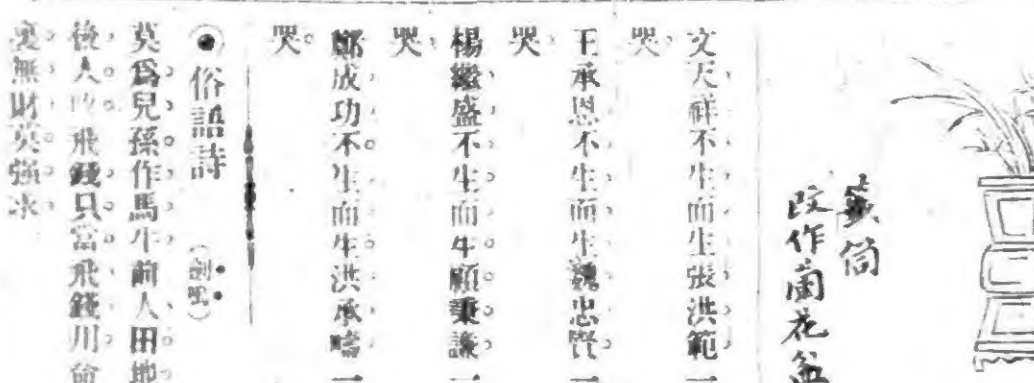 籤筒
改作蘭花盆
文天祥不生而生張洪範一
哭
王承恩不生而生魏忠賢一
哭
楊繼盛不生而生顧秉謙一
哭
鄭成功不生而生洪承疇一
哭
●俗語詩
(劍鳴)
莫爲兒孫作馬牛前人田地
後人收飛錢只當飛錢用命
裏無財莫强求